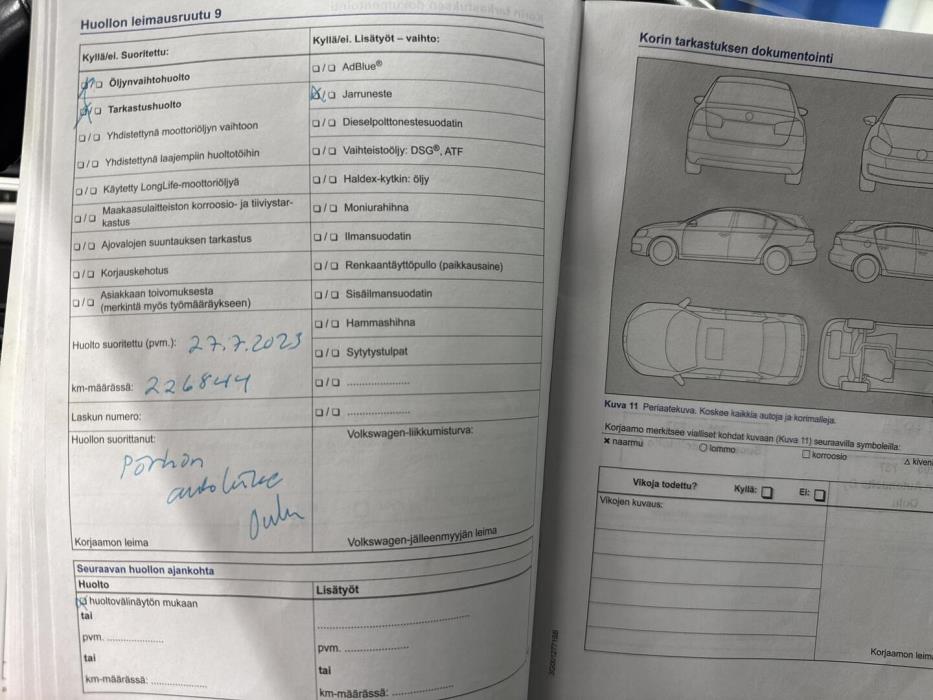 Huollon leimausruutu 9
Kyllä/ei. Suoritettu:
☒/☐ Öljynvaihtohuolto
☒/☐ Tarkastushuolto
☐/☐ Yhdistettynä moottoriöljyn vaihtoon
☐/☐ Yhdistettynä laajempiin huoltotöihin
☐/☐ Käytetty LongLife-moottoriöljyä
☐/☐ Maakaasulaitteiston korroosio- ja tiiviystar-
kastus
☐/☐ Ajovalojen suuntauksen tarkastus
☐/☐ Korjauskehotus
☐/☐ Asiakkaan toivomuksesta
(merkintä myös työmääräykseen)
Huolto suoritettu (pvm.): 27.7.2023
km-määrässä: 226844
Laskun numero:
Huollon suorittanut:
Pörhön
autoliike
Oulu
Korjaamon leima
Kyllä/ei. Lisätyöt – vaihto:
☐/☐ AdBlue®
☒/☐ Jarruneste
☐/☐ Dieselpolttonestesuodatin
☐/☐ Vaihteistoöljy: DSG®, ATF
☐/☐ Haldex-kytkin: öljy
☐/☐ Moniurahihna
☐/☐ Ilmansuodatin
☐/☐ Renkaantäyttöpullo (paikkausaine)
☐/☐ Sisäilmansuodatin
☐/☐ Hammashihna
☐/☐ Sytytystulpat
☐/☐ ....................
☐/☐ ....................
Volkswagen-liikkumisturva:
Volkswagen-jälleenmyyjän leima
Seuraavan huollon ajankohta
Huolto
☒ huoltovälinäytön mukaan
tai
pvm. ..................
tai
km-määrässä: ..................
Lisätyöt
................................................
pvm. ....................
tai
km-määrässä: ....................
Korin tarkastuksen dokumentointi
Kuva 11 Periaatekuva. Koskee kaikkia autoja ja korimalleja.
Korjaamo merkitsee vialliset kohdat kuvaan (Kuva 11) seuraavilla symboleilla:
× naarmu ○ lommo ☐ korroosio △ kiven
Vikoja todettu? Kyllä: ☐ Ei: ☐
Vikojen kuvaus:
Korjaamon leim